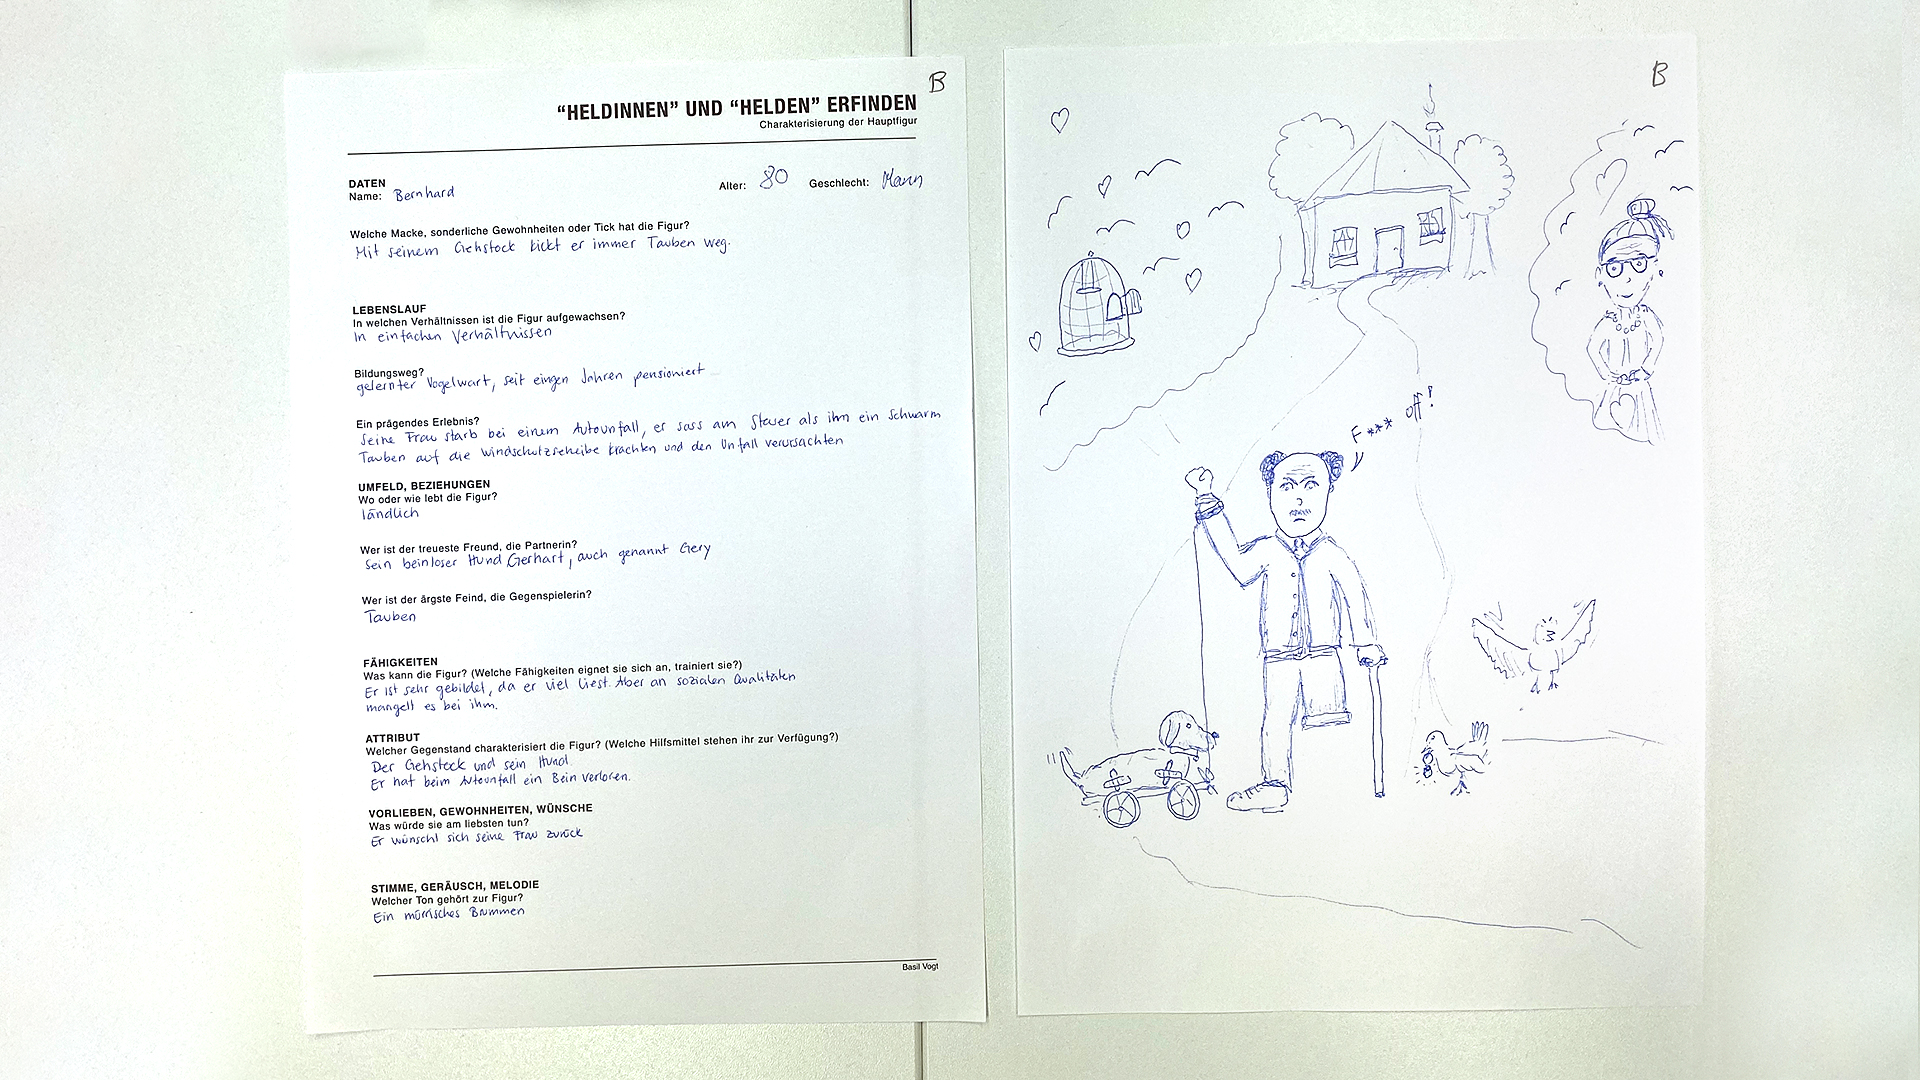 B
“HELDINNEN” UND “HELDEN” ERFINDEN
Charakterisierung der Hauptfigur
DATEN
Name: Bernhard Alter: 80 Geschlecht: Mann
Welche Macke, sonderliche Gewohnheiten oder Tick hat die Figur?
Mit seinem Gehstock kickt er immer Tauben weg.
LEBENSLAUF
In welchen Verhältnissen ist die Figur aufgewachsen?
In einfachen Verhältnissen
Bildungsweg?
gelernter Vogelwart, seit eingen Jahren pensioniert
Ein prägendes Erlebnis?
Seine Frau starb bei einem Autounfall, er sass am Steuer als ihm ein Schwarm
Tauben auf die Windschutzscheibe krachten und den Unfall verursachten
UMFELD, BEZIEHUNGEN
Wo oder wie lebt die Figur?
ländlich
Wer ist der treueste Freund, die Partnerin?
Sein beinloser Hund Gerhart, auch genannt Gery
Wer ist der ärgste Feind, die Gegenspielerin?
Tauben
FÄHIGKEITEN
Was kann die Figur? (Welche Fähigkeiten eignet sie sich an, trainiert sie?)
Er ist sehr gebildet, da er viel liest. Aber an sozialen Qualitäten
mangelt es bei ihm.
ATTRIBUT
Welcher Gegenstand charakterisiert die Figur? (Welche Hilfsmittel stehen ihr zur Verfügung?)
Der Gehstock und sein Hund.
Er hat beim Autounfall ein Bein verloren.
VORLIEBEN, GEWOHNHEITEN, WÜNSCHE
Was würde sie am liebsten tun?
Er wünscht sich seine Frau zurück
STIMME, GERÄUSCH, MELODIE
Welcher Ton gehört zur Figur?
Ein mürrisches Brummen
Basil Vogt
B
F*** off!